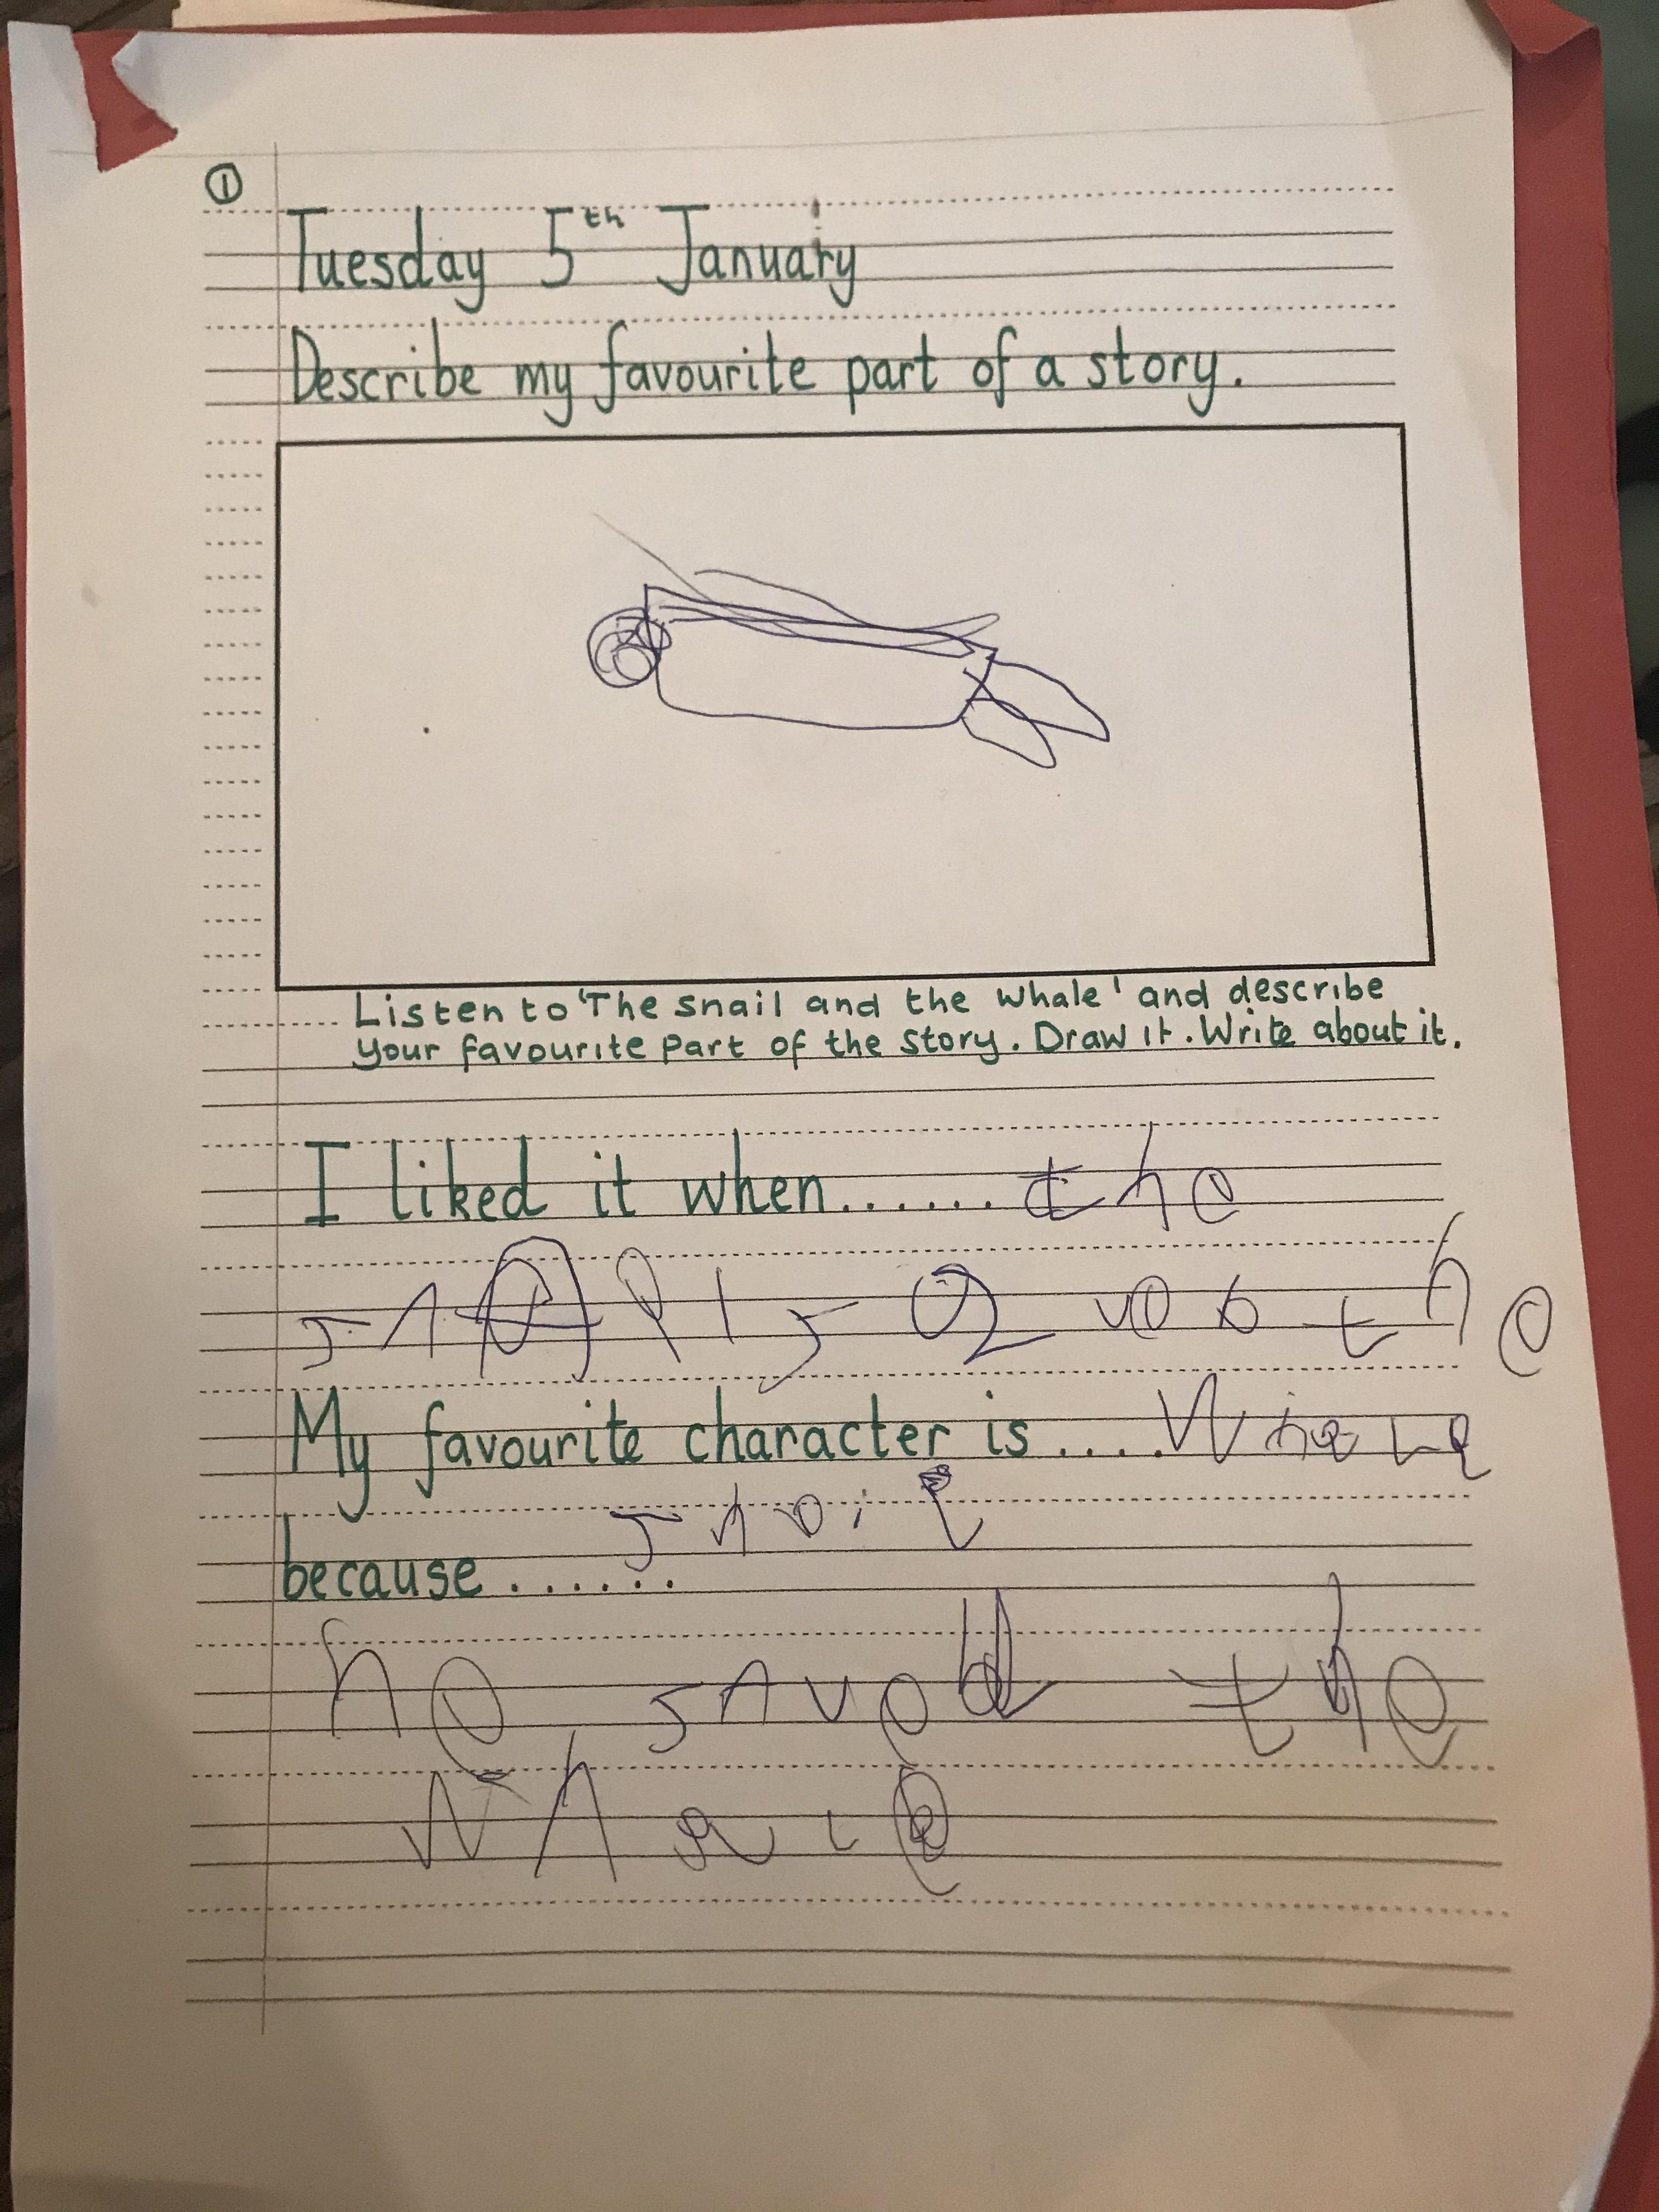 ①
Tuesday 5th January
Describe my favourite part of a story.
Listen to 'The Snail and the Whale' and describe
your favourite part of the story. Draw it. Write about it.
I liked it when....... the
the
My favourite character is..... Whale
snail
because.......
he saved the
Whale